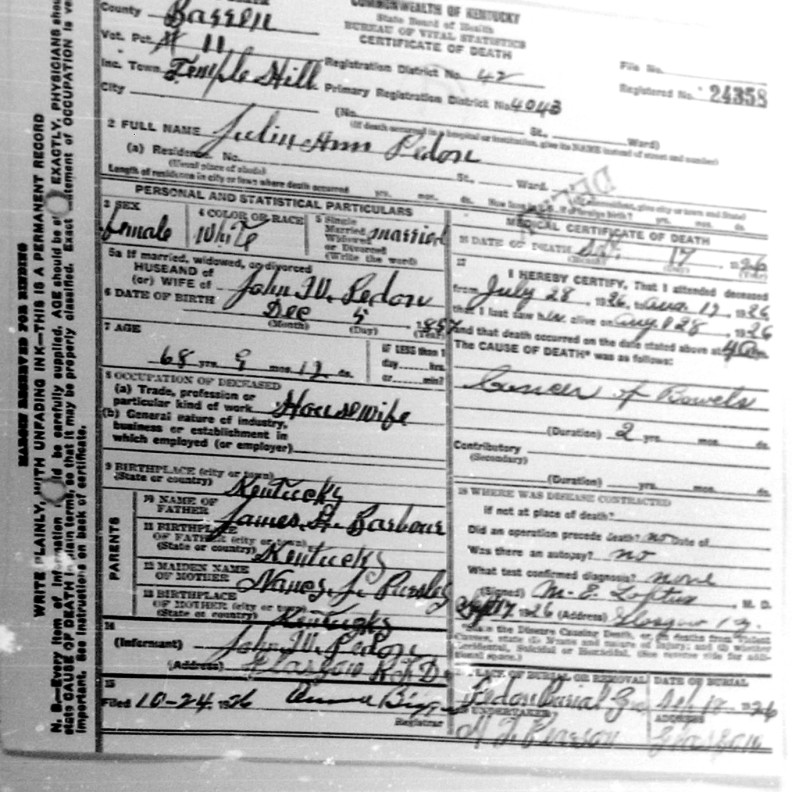 COMMONWEALTH OF KENTUCKY
State Board of Health
BUREAU OF VITAL STATISTICS
CERTIFICATE OF DEATH
County Barren
Vot. Pct. # 11
Inc. Town Temple Hill
City
Registration District No. 42
Primary Registration District No. 4043
File No.
Registered No. 24358
(No. St., Ward)
(If death occurred in a hospital or institution, give its NAME instead of street and number)
2 FULL NAME Julia Ann Pedon
(a) Residence. No. St., Ward.
(Usual place of abode)
Length of residence in city or town where death occurred yrs. mos. ds.
PERSONAL AND STATISTICAL PARTICULARS
3 SEX female
4 COLOR OR RACE White
5 Single Married Widowed or Divorced (Write the word) married
5a If married, widowed, or divorced
HUSBAND of
(or) WIFE of John W. Pedon
6 DATE OF BIRTH Dec 5 1857
(Month) (Day) (Year)
7 AGE
68 yrs. 9 mos. 12 ds.
IF LESS than 1
day hrs.
or min?
8 OCCUPATION OF DECEASED
(a) Trade, profession or
particular kind of work Housewife
(b) General nature of industry,
business or establishment in
which employed (or employer)
9 BIRTHPLACE (city or town)
(State or country) Kentucky
PARENTS
10 NAME OF
FATHER James H. Barbour
11 BIRTHPLACE
OF FATHER (city or town)
(State or country) Kentucky
12 MAIDEN NAME
OF MOTHER Nancy J. Pursley
13 BIRTHPLACE
OF MOTHER (city or town)
(State or country) Kentucky
14
(Informant) John W. Pedon
(Address) Glasgow R.F.D.
15
Filed 10-24, 1926 Anna
Registrar
MEDICAL CERTIFICATE OF DEATH
16 DATE OF DEATH Sept. 17, 1926
17
I HEREBY CERTIFY, That I attended deceased
from July 28, 1926, to 1926
that I last saw her alive on Aug 28, 1926
and that death occurred on the date stated above at
The CAUSE OF DEATH* was as follows:
Cancer of Bowels
(Duration) 2 yrs. mos. ds.
Contributory
(Secondary)
(Duration) yrs. mos. ds.
18 WHERE WAS DISEASE CONTRACTED
if not at place of death?
Did an operation precede death? no Date of
Was there an autopsy? no
What test confirmed diagnosis? none
(Signed) M. E. Loftin, M. D.
Sept 17, 1926 (Address) Glasgow
PLACE OF BURIAL OR REMOVAL
Pedon Burial
DATE OF BURIAL
Sept 18, 1926
UNDERTAKER
ADDRESS
Glasgow
MARGIN RESERVED FOR BINDING
WRITE PLAINLY, WITH UNFADING INK—THIS IS A PERMANENT RECORD
N. B.—Every item of information should be carefully supplied. AGE should be EXACTLY. PHYSICIANS
state CAUSE OF DEATH in plain terms, so that it may be properly classified. Exact statement of OCCUPATION is
important. See instructions on back of certificate.